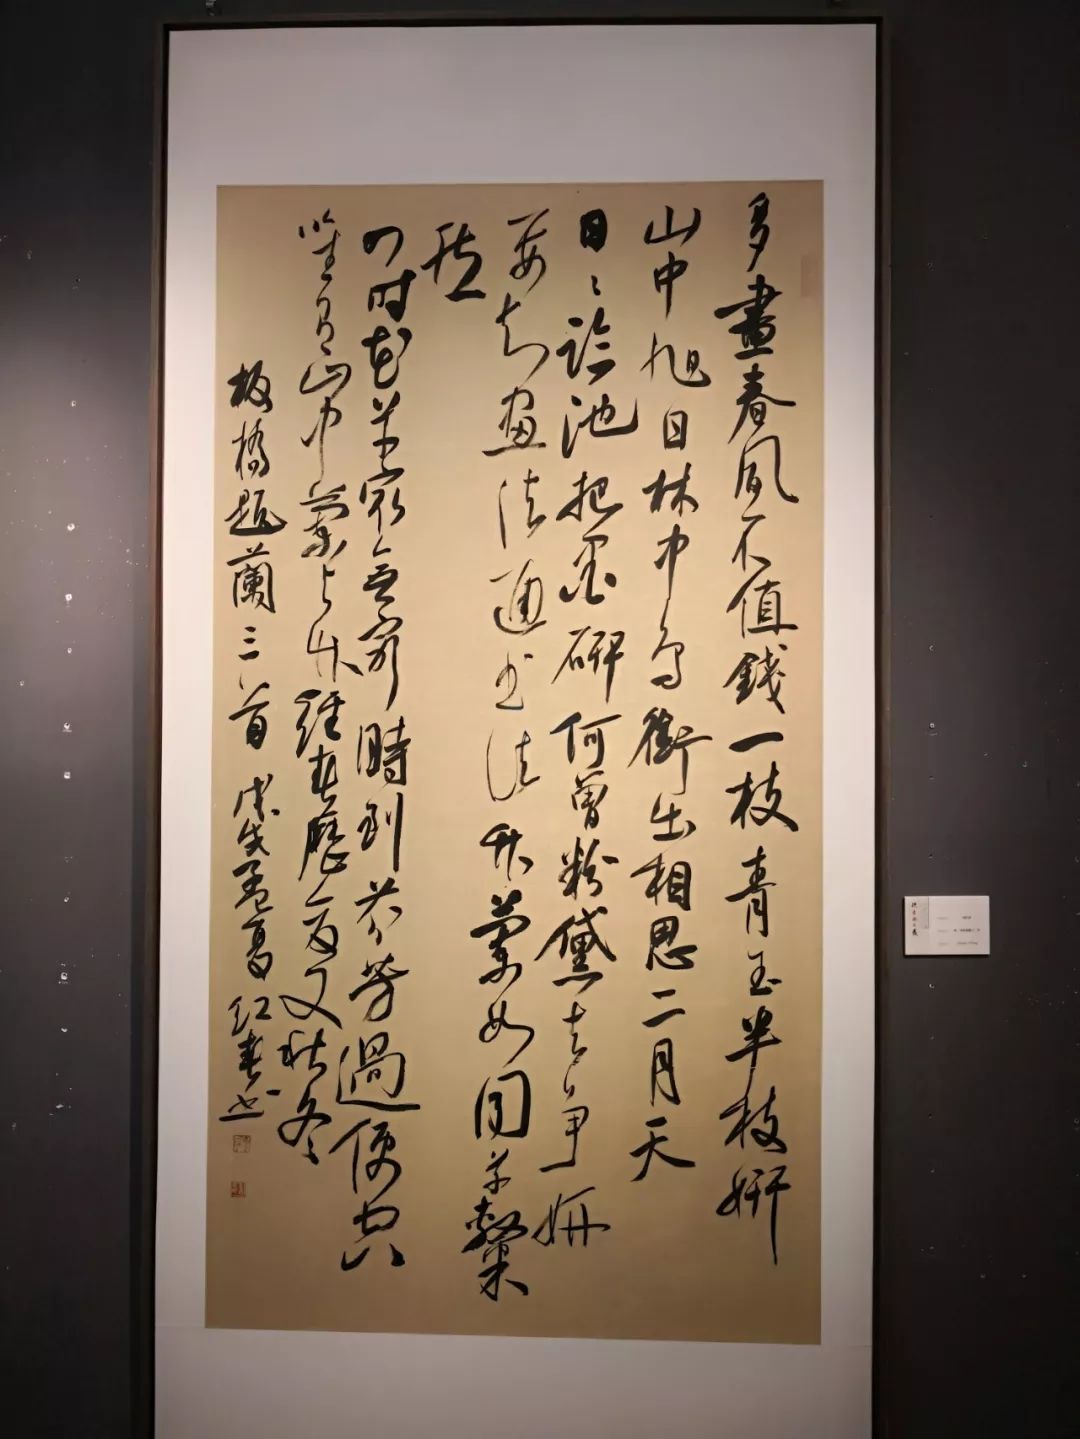 多畫春風不值錢一枝青玉半枝妍
山中旭日林中鳥銜出相思二月天
日〻臨池把墨研何曾粉黛去爭妍
要知画法通书法竹蘭如同草隸
然
四时花草最無窮時到芬芳過便空
唯有山中蘭与竹經春歷夏又秋冬
板橋題蘭三首 戊戌孟夏 红春书